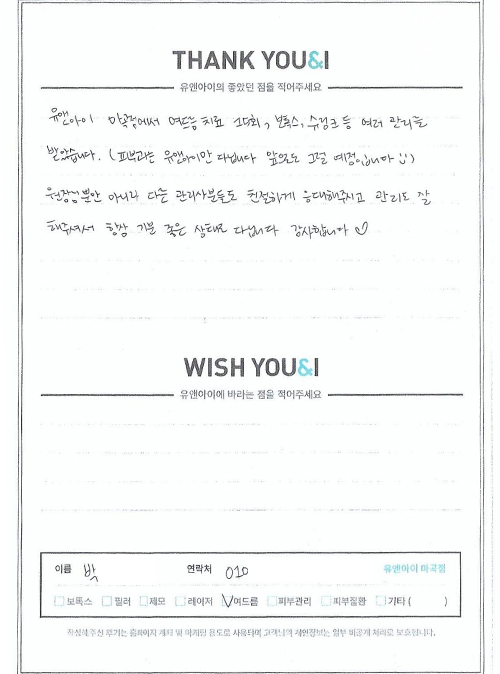 THANK YOU&I
유앤아이의 좋았던 점을 적어주세요
유앤아이 마곡점에서 여드름치료 10회, 보톡스, 수검크 등 여러 관리를
받았습니다. (피부과는 유앤아이만 다닙니다 앞으로도 그럴 예정입니다 :))
원장님뿐만 아니라 다른 관리사분들도 친절하게 응대해주시고 관리도 잘
해주셔서 항상 기분 좋은 상태로 다닙니다 감사합니다 ♡
WISH YOU&I
유앤아이에 바라는 점을 적어주세요
이름 박 연락처 010 유앤아이 마곡점
보톡스 필러 제모 레이저 여드름 피부관리 피부질환 기타 ( )
작성해주신 후기는 홈페이지 게재 및 마케팅 용도로 사용되며 고객님의 개인정보는 일부 비공개 처리로 보호됩니다.